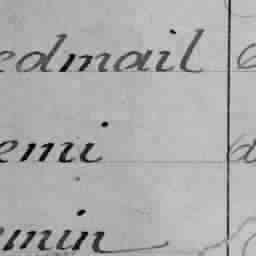 edmail
emi
min